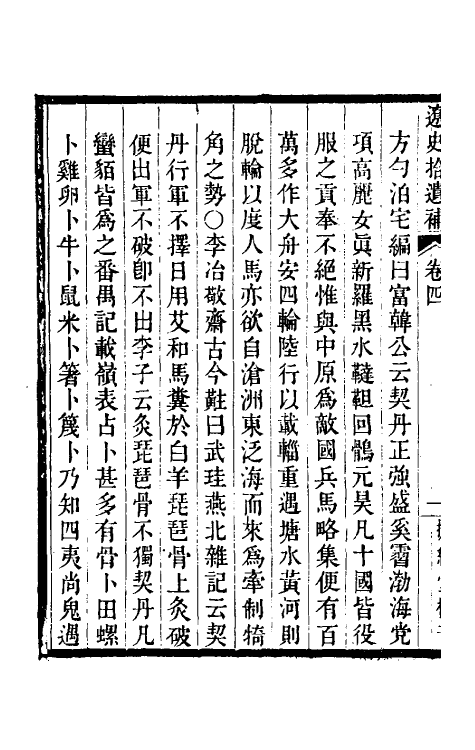 遼史拾遺補 卷四 一
方勺泊宅編曰富韓公云契丹正強盛奚霫渤海党
項高麗女眞新羅黑水韃靼回鶻元昊凡十國皆役
服之貢奉不絕惟與中原爲敵國兵馬略集便有百
萬多作大舟安四輪陸行以載輜重遇塘水黃河則
脫輪以度人馬亦欲自滄洲東泛海而來爲牽制犄
角之勢〇李冶敬齋古今黈曰武珪燕北雜記云契
丹行軍不擇日用艾和馬糞於白羊琵琶骨上灸破
便出軍不破卽不出李子云灸琵琶骨不獨契丹凡
蠻貊皆爲之番禺記載嶺表占卜甚多有骨卜田螺
卜雞卵卜牛卜鼠米卜箸卜篾卜乃知四夷尚鬼遇